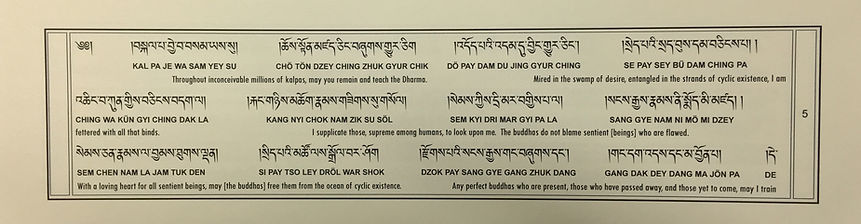 ༄༅། །བསྐལ་པ་བྱེ་བ་བསམ་ཡས་སུ། །ཆོས་སྟོན་མཛད་ཅིང་བཞུགས་གྱུར་ཅིག །འདོད་པའི་འདམ་དུ་བྱིང་གྱུར་ཅིང་། །སྲིད་པའི་སྲད་བུས་དམ་བཅིངས་པ། །
KAL PA JE WA SAM YEY SU CHÖ TÖN DZEY CHING ZHUK GYUR CHIK DÖ PAY DAM DU JING GYUR CHING SE PAY SEY BÜ DAM CHING PA
Throughout inconceivable millions of kalpas, may you remain and teach the Dharma. Mired in the swamp of desire, entangled in the strands of cyclic existence, I am
འཆིང་བ་ཀུན་གྱིས་བཅིངས་བདག་ལ། །རྐང་གཉིས་མཆོག་རྣམས་གཟིགས་སུ་གསོལ། །སེམས་ཀྱིས་དྲི་མར་བགྱིས་པ་ལ། །སངས་རྒྱས་རྣམས་ནི་སྨོད་མི་མཛད། །
CHING WA KÜN GYI CHING DAK LA KANG NYI CHOK NAM ZIK SU SÖL SEM KYI DRI MAR GYI PA LA SANG GYE NAM NI MÖ MI DZEY
fettered with all that binds. I supplicate those, supreme among humans, to look upon me. The buddhas do not blame sentient [beings] who are flawed.
5
སེམས་ཅན་རྣམས་ལ་བྱམས་ཐུགས་ལྡན། །སྲིད་པའི་མཚོ་ལས་སྒྲོལ་བར་ཤོག །རྫོགས་པའི་སངས་རྒྱས་གང་བཞུགས་དང་། །གང་དག་འདས་དང་མ་བྱོན་པ། །དེ་
SEM CHEN NAM LA JAM TUK DEN SI PAY TSO LEY DRÖL WAR SHOK DZOK PAY SANG GYE GANG ZHUK DANG GANG DAK DEY DANG MA JÖN PA DE
With a loving heart for all sentient beings, may [the buddhas] free them from the ocean of cyclic existence. Any perfect buddhas who are present, those who have passed away, and those yet to come, may I train